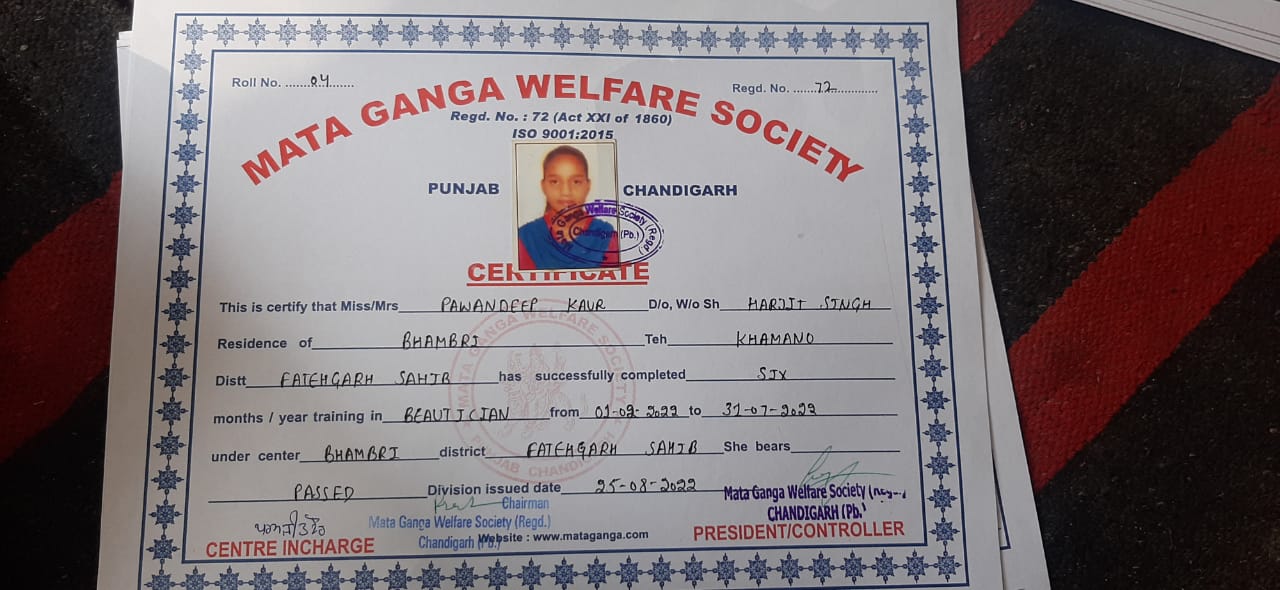 Roll No. ........04........
Regd. No. ......72..............
MATA GANGA WELFARE SOCIETY
Regd. No. : 72 (Act XXI of 1860)
ISO 9001:2015
PUNJAB CHANDIGARH
Ganga Welfare Society (Regd)
Chandigarh (Pb.)
CERTIFICATE
This is certify that Miss/Mrs PAWANDEEP KAUR D/o, W/o Sh HARJIT SINGH
Residence of BHAMBRI Teh KHAMANO
Distt FATEHGARH SAHIB has successfully completed SIX
months / year training in BEAUTICIAN from 01-02-2022 to 31-07-2022
under center BHAMBRI district FATEHGARH SAHIB She bears
PASSED Division issued date 25-08-2022
MATA GANGA WELFARE SOCIETY
PUNJAB CHANDIGARH
Chairman
Mata Ganga Welfare Society (Regd.)
Chandigarh (Pb.)
Mata Ganga Welfare Society
CHANDIGARH (Pb.)
CENTRE INCHARGE
Website : www.mataganga.com
PRESIDENT/CONTROLLER